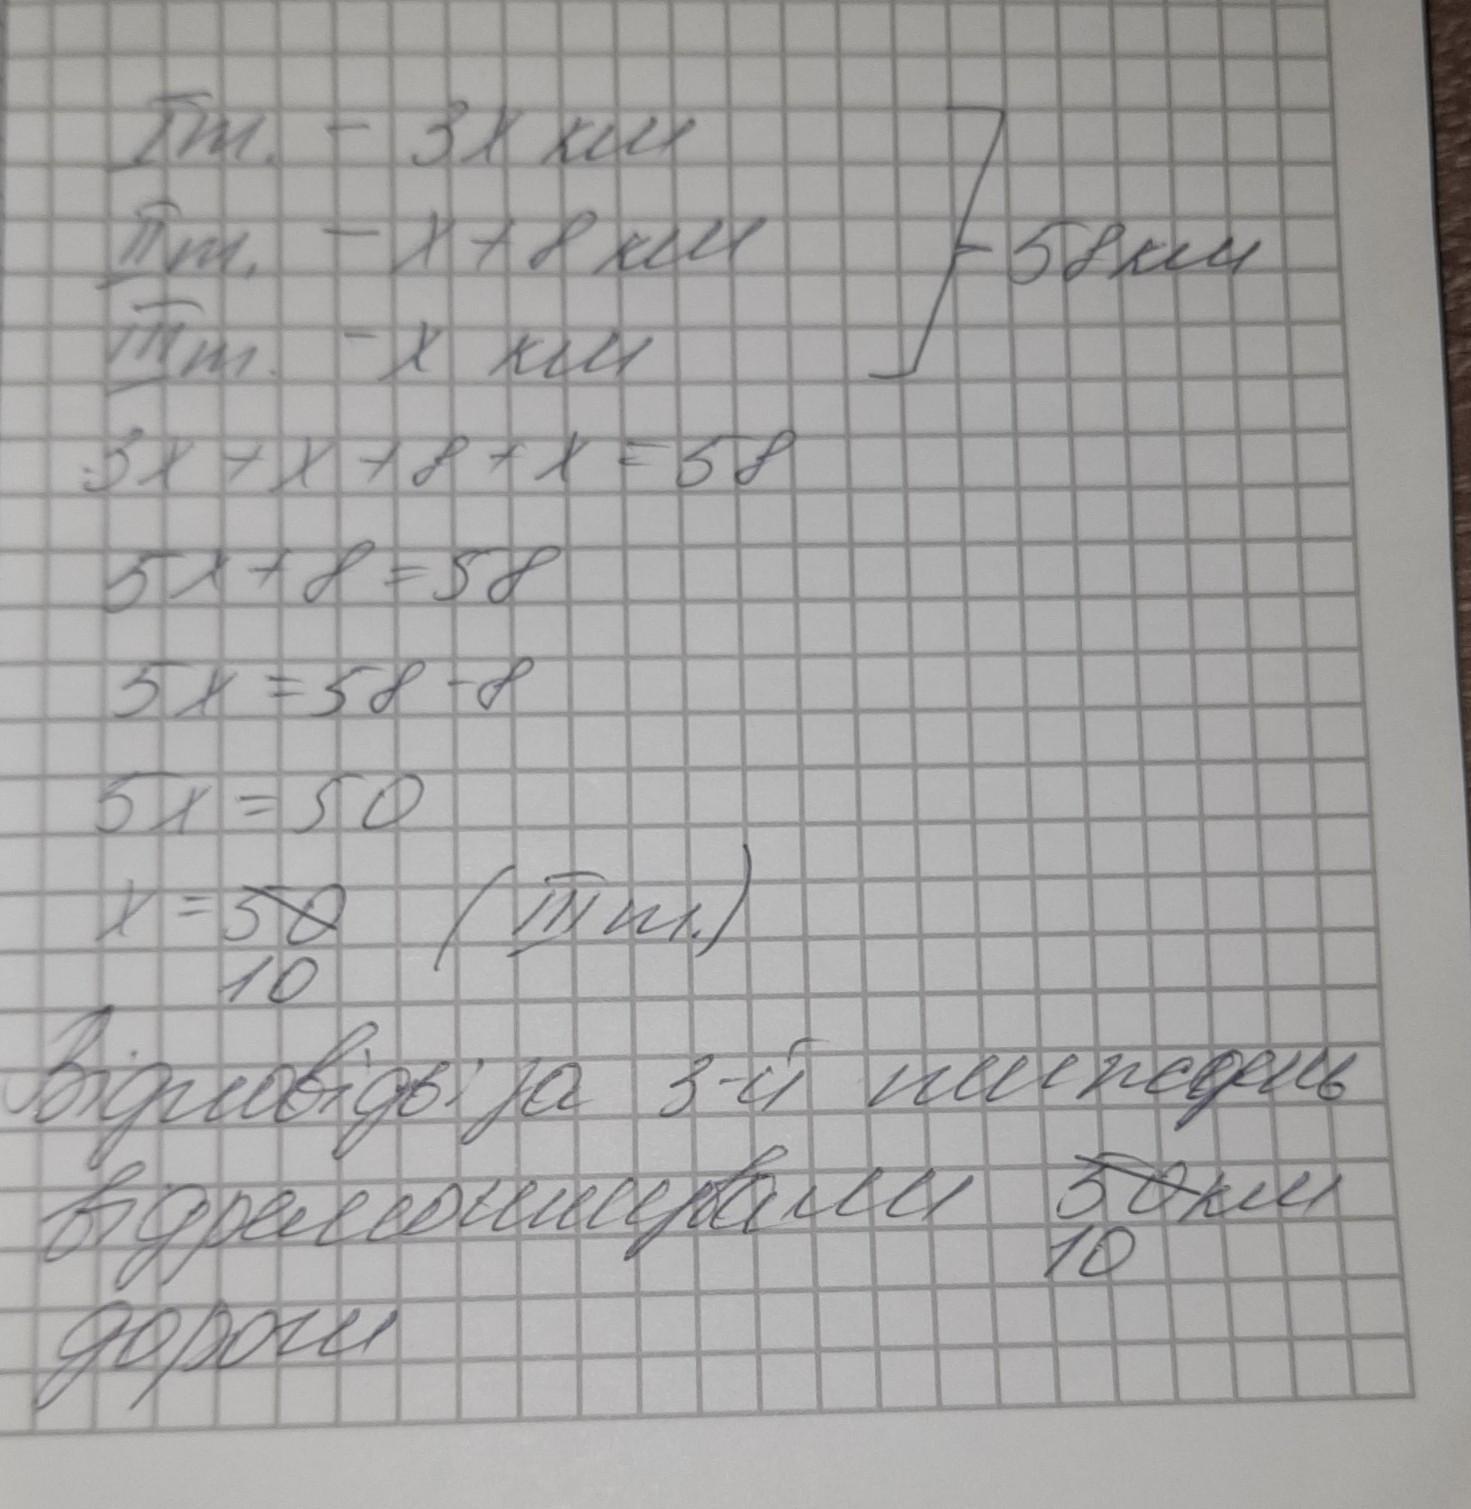 I т. - 3x км
II т. - x + 8 км
III т. - x км
- 58 км
3x + x + 8 + x = 58
5x + 8 = 58
5x = 58 - 8
5x = 50
x = 50 (III т.)
10
Відповідь: за 3-й тиждень
відремонтували 50 км
10
дороги